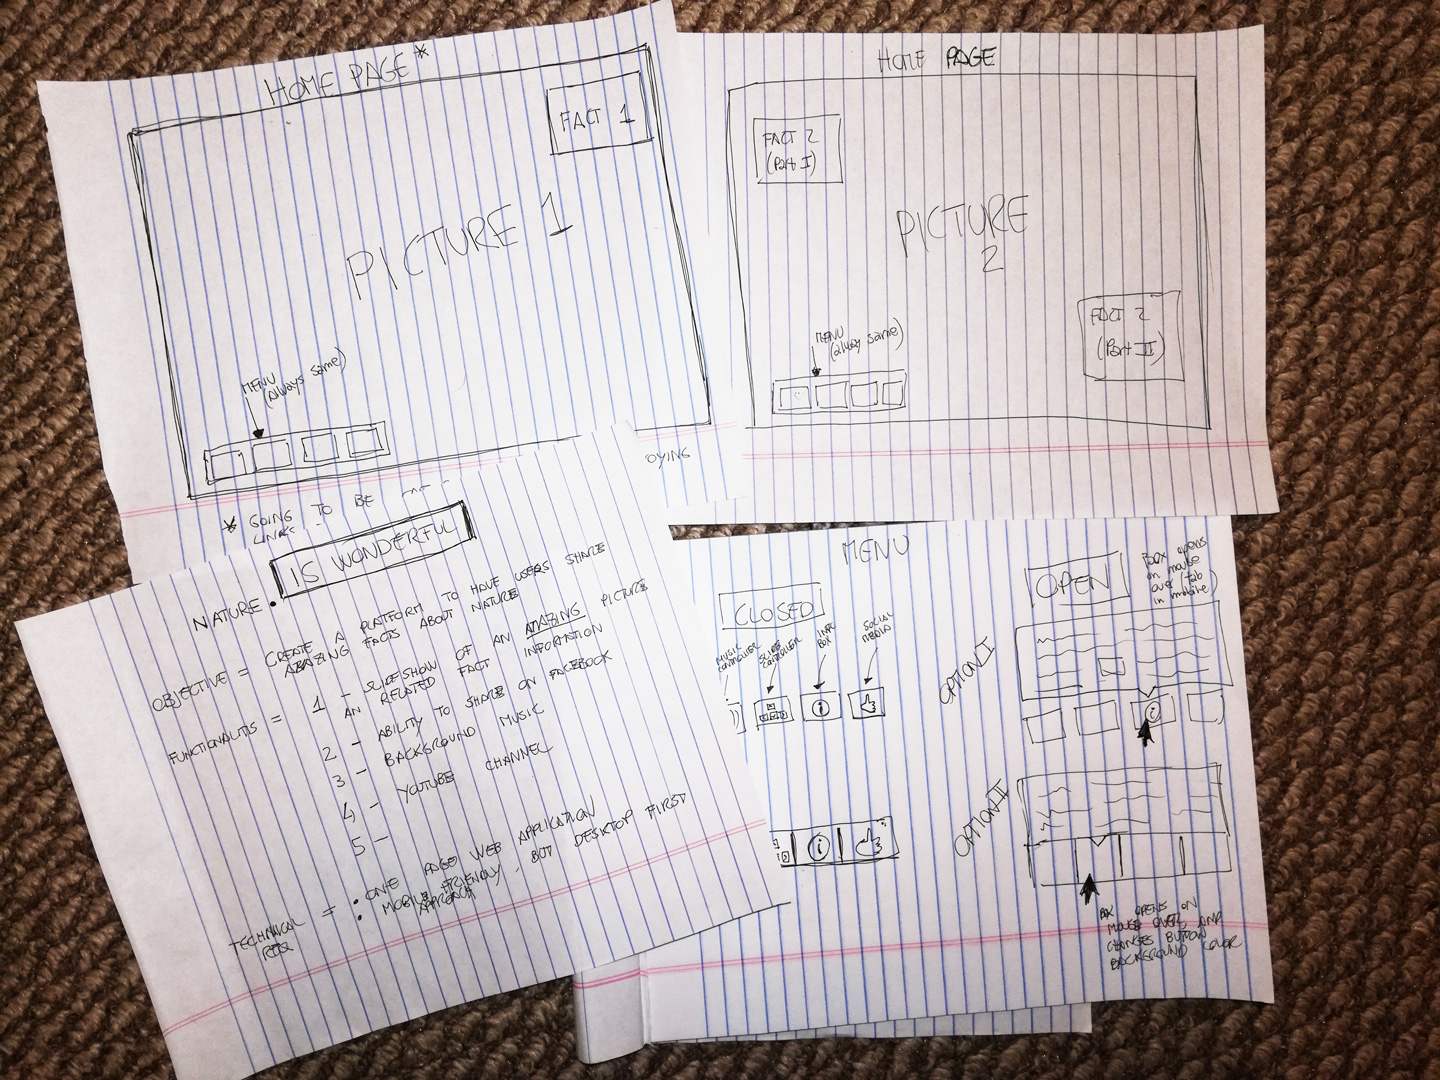 HOME PAGE *
FACT 1
PICTURE 1
MENU
(always same)
* GOING TO BE
OYING
HOME PAGE
FACT 2
(Part I)
PICTURE
2
MENU
(always same)
FACT 2
(Part II)
NATURE. IS WONDERFUL
OBJECTIVE = CREATE A PLATFORM TO HAVE USERS SHARE
AMAZING FACTS ABOUT NATURE
FUNCTIONALITIS = 1 - SLIDESHOW OF AN AMAZING PICTURE
AN RELATED FACT INFORMATION
2 - ABILITY TO SHARE ON FACEBOOK
3 - BACKGROUND MUSIC
4 - YOUTUBE CHANNEL
5 -
TECHNICAL = • ONE PAGE WEB APPLICATION
• MOBILE FRIENDLY, BUT DESKTOP FIRST
APPROACH
MENU
CLOSED
MUSIC
CONTROLLER
SLIDE
CONTROLLER
INFO
BOX
SOCIAL
MEDIA
i
i
OPEN
BOX opens
on mouse
over (tab
in mobile)
OPTION I
i
OPTION II
BOX OPENS ON
MOUSE OVER, AND
CHANGES BUTTON
BACKGROUND COLOR